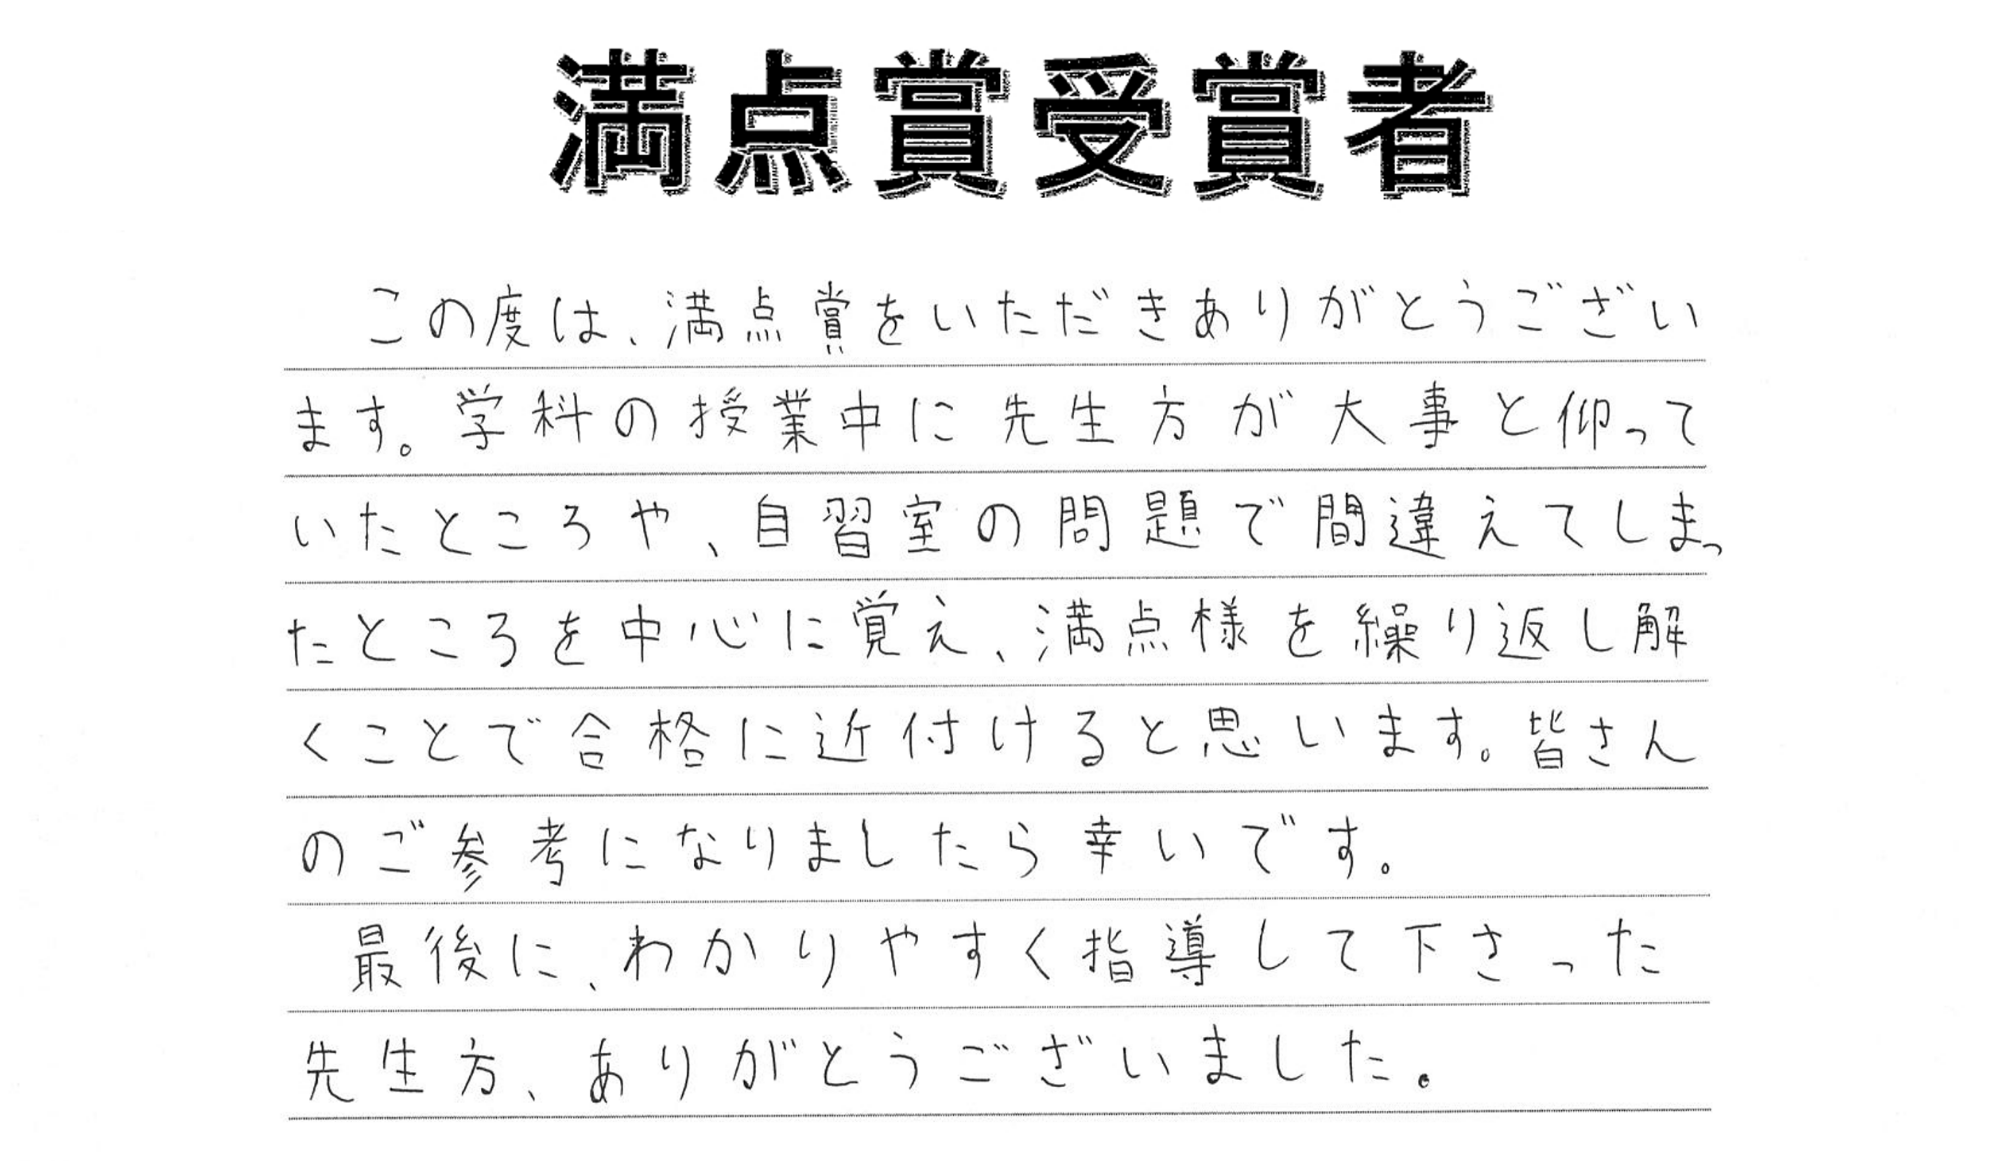 満点賞受賞者
この度は、満点賞をいただきありがとうござい
ます。学科の授業中に先生方が大事と仰って
いたところや、自習室の問題で間違えてしまっ
たところを中心に覚え、満点様を繰り返し解
くことで合格に近付けると思います。皆さん
のご参考になりましたら幸いです。
最後に、わかりやすく指導して下さった
先生方、ありがとうございました。